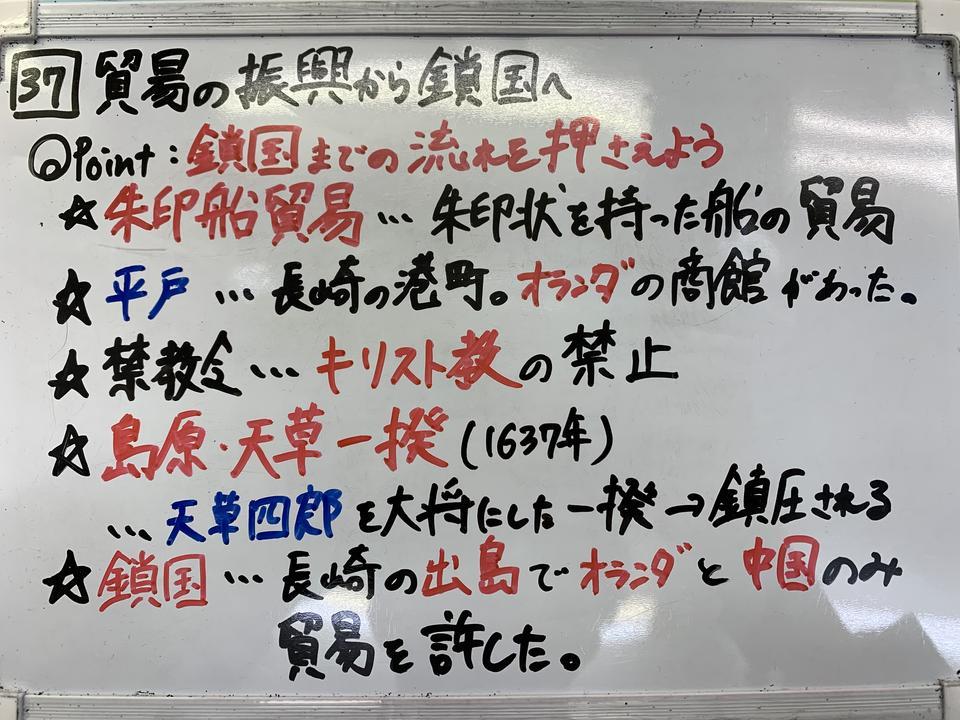 37 貿易の振興から鎖国へ
◎Point:鎖国までの流れを押さえよう
☆朱印船貿易…朱印状を持った船の貿易
☆平戸…長崎の港町。オランダの商館があった。
☆禁教令…キリスト教の禁止
☆島原・天草一揆(1637年)
…天草四郎を大将にした一揆→鎮圧される
☆鎖国…長崎の出島でオランダと中国のみ
貿易を許した。